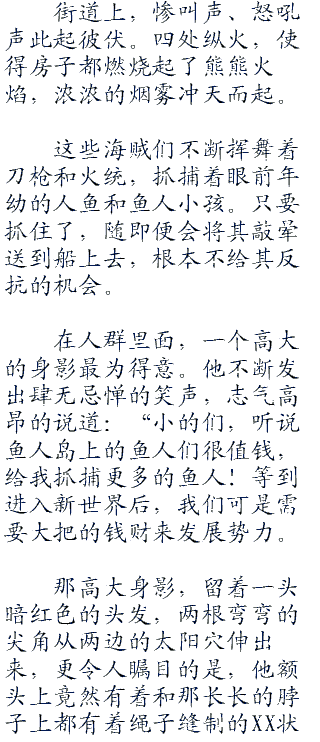 街道上，惨叫声、怒吼
声此起彼伏。四处纵火，使
得房子都燃烧起了熊熊火
焰，浓浓的烟雾冲天而起。
这些海贼们不断挥舞着
刀枪和火铳，抓捕着眼前年
幼的人鱼和鱼人小孩。只要
抓住了，随即便会将其敲晕
送到船上去，根本不给其反
抗的机会。
在人群里面，一个高大
的身影最为得意。他不断发
出肆无忌惮的笑声，志气高
昂的说道：“小的们，听说
鱼人岛上的鱼人们很值钱，
给我抓捕更多的鱼人！等到
进入新世界后，我们可是需
要大把的钱财来发展势力。
那高大身影，留着一头
暗红色的头发，两根弯弯的
尖角从两边的太阳穴伸出
来，更令人瞩目的是，他额
头上竟然有着和那长长的脖
子上都有着绳子缝制的XX状